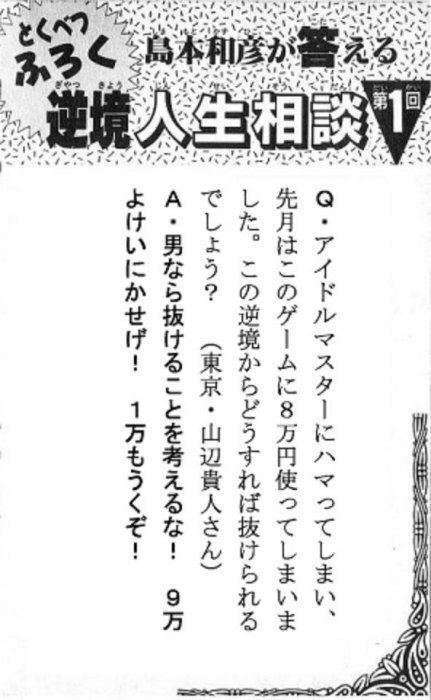 とくべつ
ふろく
島本和彦が答える
逆境人生相談
第1回
Q・アイドルマスターにハマってしまい、
先月はこのゲームに8万円使ってしまいま
した。この逆境からどうすれば抜けられる
でしょう？　（東京・山辺貴人さん）
A・男なら抜けることを考えるな！　9万
よけいにかせげ！　1万もうくぞ！